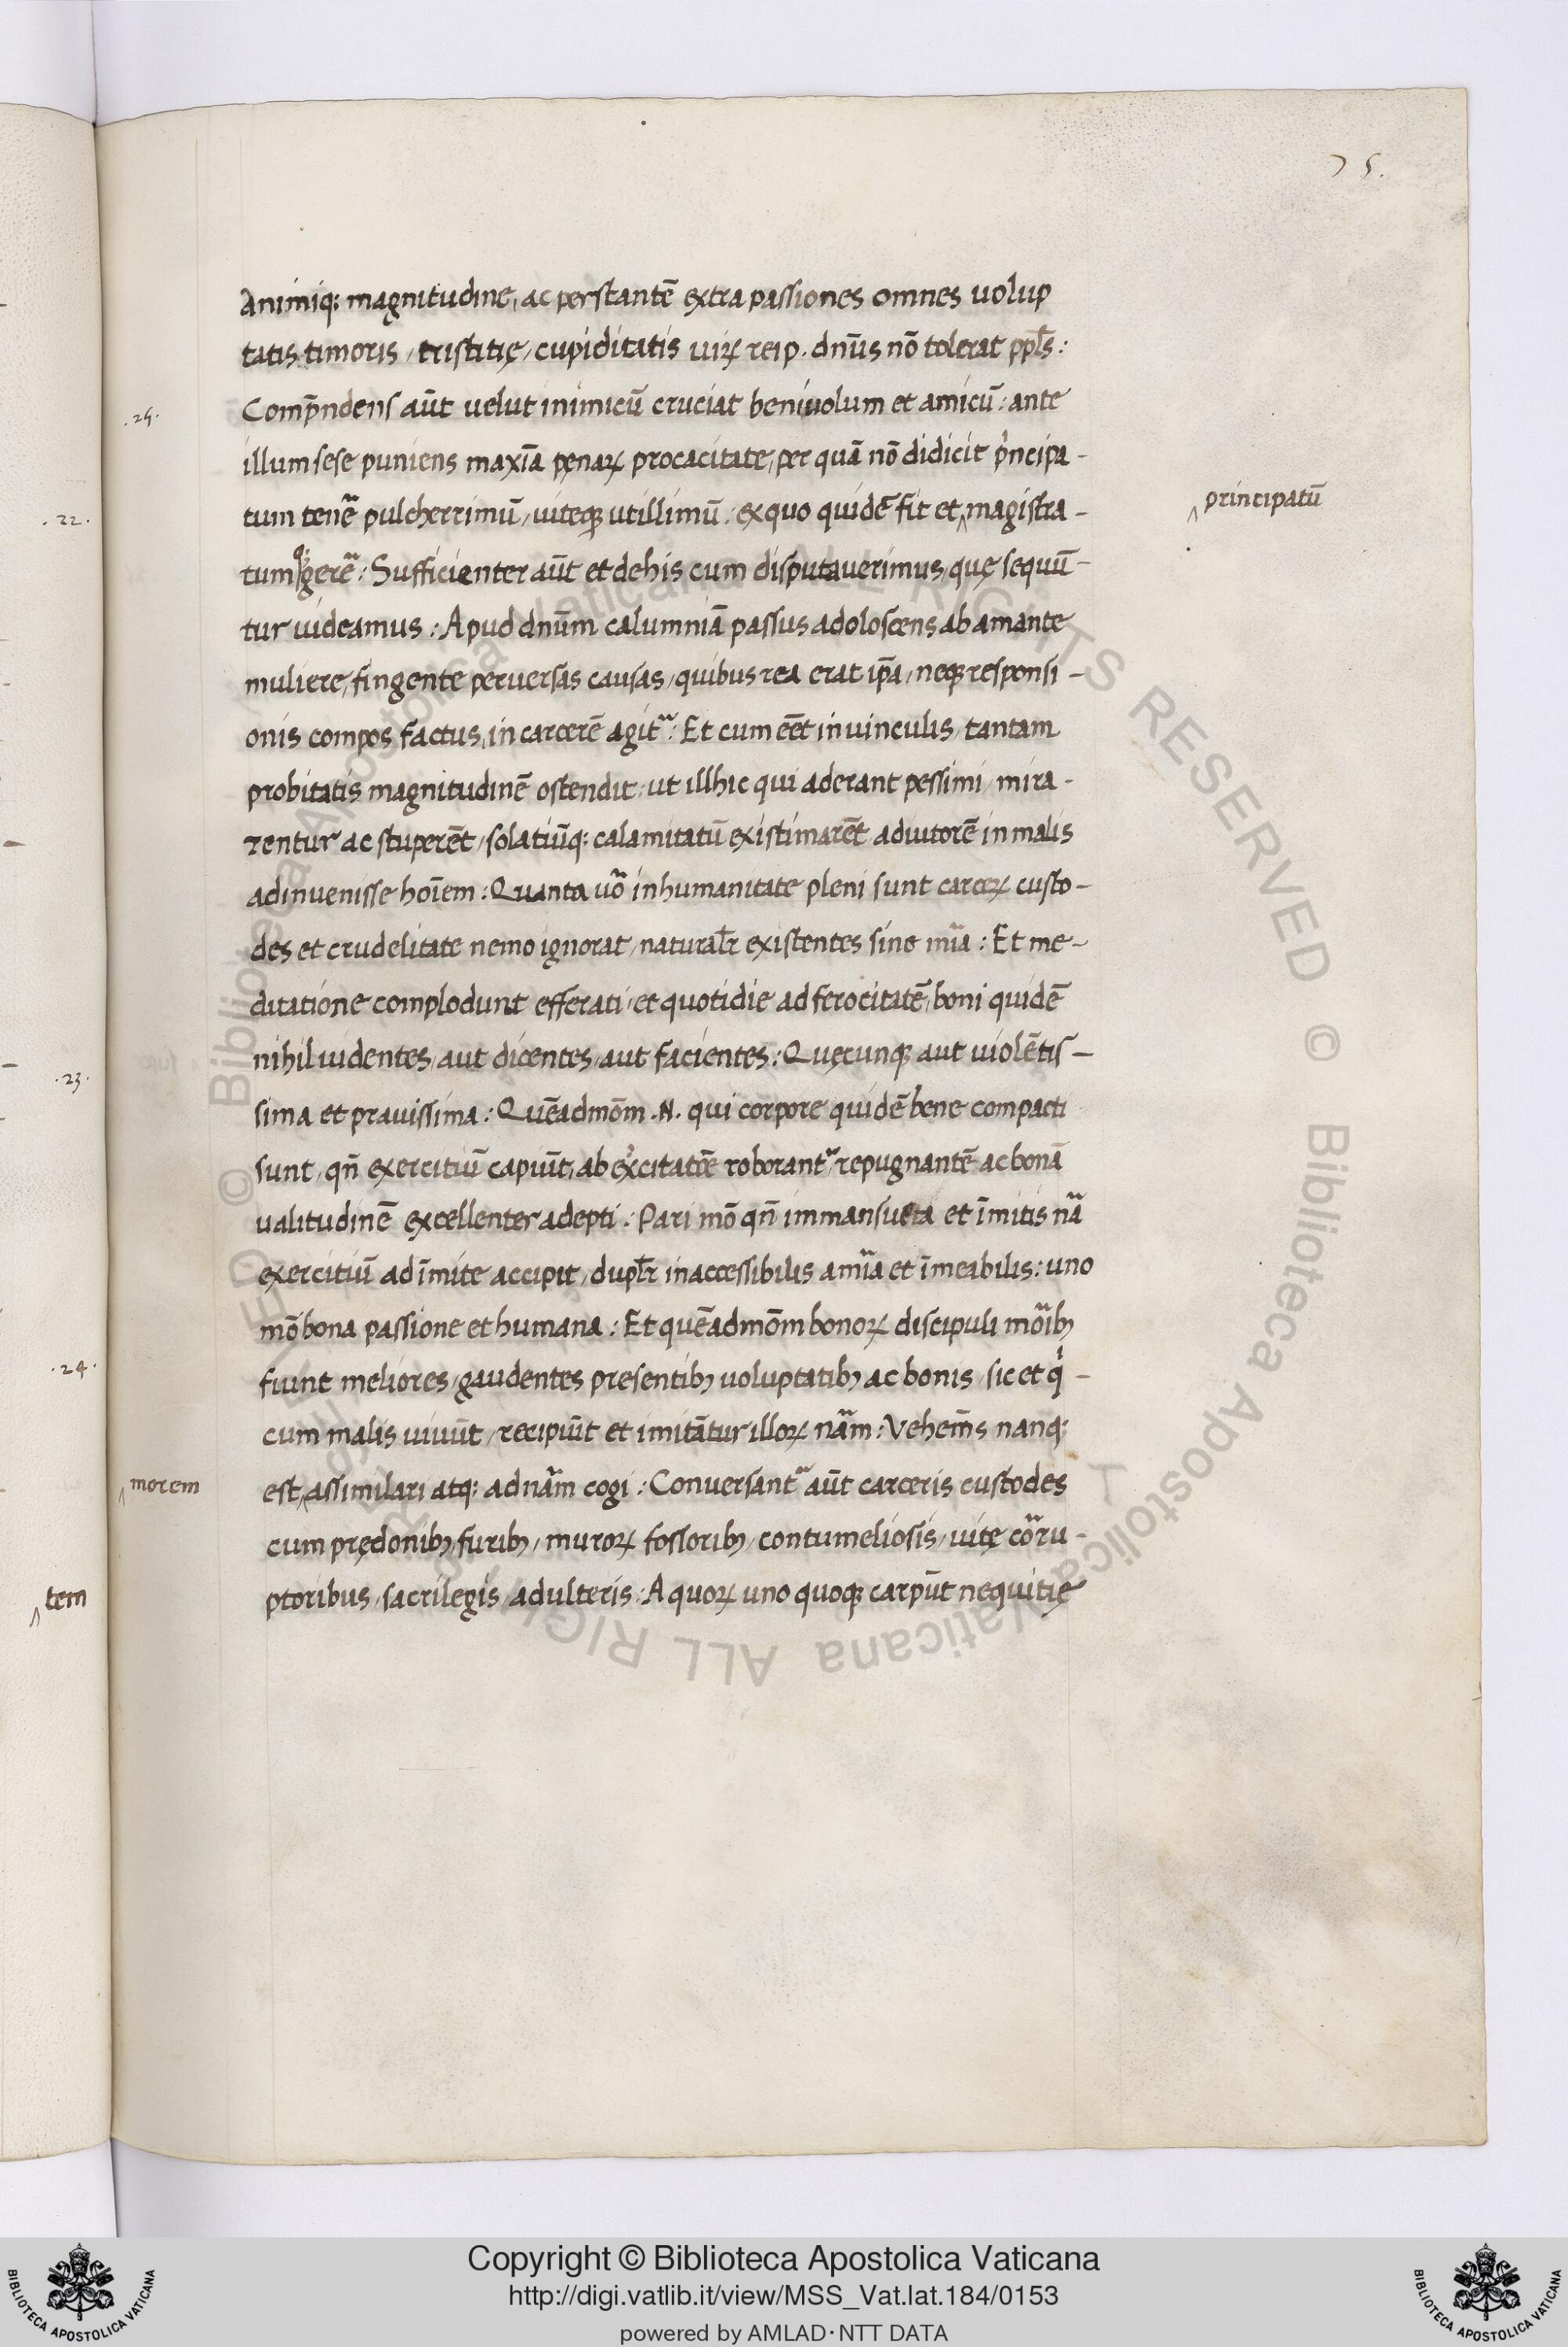 75.
animiq; magnitudine, ac perstantē extra passiones omnes uolup
tatis, timoris, tristitię, cupiditatis uiꝝ reip. dn̄us nō tolerat ppl̄s:
.25. Comp̄ndens aūt uelut inimicū cruciat beniuolum et amicū: ante
illum sese puniens maxīa pęnaꝝ procacitate, per quā nō didicit pⁱncipa-
tum tenēr pulcherrimū, uiteqꝫ utillimū: ex quo quidē fit et ‸ magistra-
‸ principatū
tum gerēr: Sufficienter aūt et de his cum disputauerimus, quę sequū-
tur uideamus: Apud dn̄um calumniā passus adoloscens ab amante
muliere, fingente peruersas causas, quibus rea erat ip̄a, neqꝫ responsi-
onis compos factus, in carcerē agit᷑: Et cum eēt in uinculis, tantam
probitatis magnitudinē ostendit, ut illhic qui aderant pessimi, mira-
rentur ac stuperēt, solatiūq; calamitatū existimarēt adiutorē in malis
adinuenisse hoīem: Quanta uō inhumanitate pleni sunt carceꝝ custo-
des et crudelitate nemo ignorat, natural̄r existentes sine mīa: Et me-
ditatione complodunt efferati, et quotidie ad ferocitatē, boni quidē
nihil uidentes, aut dicentes, aut facientes: Quęcunqꝫ aut uiolētis-
sima et prauissima: Quēadmōm .N. qui corpore quidē bene compacti
sunt, qn̄ exercitiū capiūt, ab exⁱcitatōe roborant᷑, repugnantē ac bonā
ualitudinē excellenter adepti: Pari mō qn̄ immansueta et īmitis nā
exercitiū ad īmite accipit, dupl̄r inaccessibilis a mīa et īmeabilis: uno
mō bona passione et humana: Et quēadmōm bonoꝝ discipuli mōibꝫ
fiunt meliores, gaudentes presentibꝫ uoluptatibꝫ ac bonis, sic et qⁱ-
cum malis uiuūt, recipiūt et imitāntur illoꝝ nām: Vehem̄s nanq;
‸ morem
est, ‸ assimilari atq; ad nām cogi: Conuersant᷑ aūt carceris custodes
cum prędonibꝫ, furibꝫ, muroꝝ fossoribꝫ, contumeliosis, uitę cōru-
ptoribus, sacrilegis, adulteris: A quoꝝ uno quoqꝫ carpūt nequitię
.22.
.23.
.24.
‸ tem
Copyright © Biblioteca Apostolica Vaticana
http://digi.vatlib.it/view/MSS_Vat.lat.184/0153
powered by AMLAD·NTT DATA
BIBLIOTECA APOSTOLICA VATICANA
BIBLIOTECA APOSTOLICA VATICANA